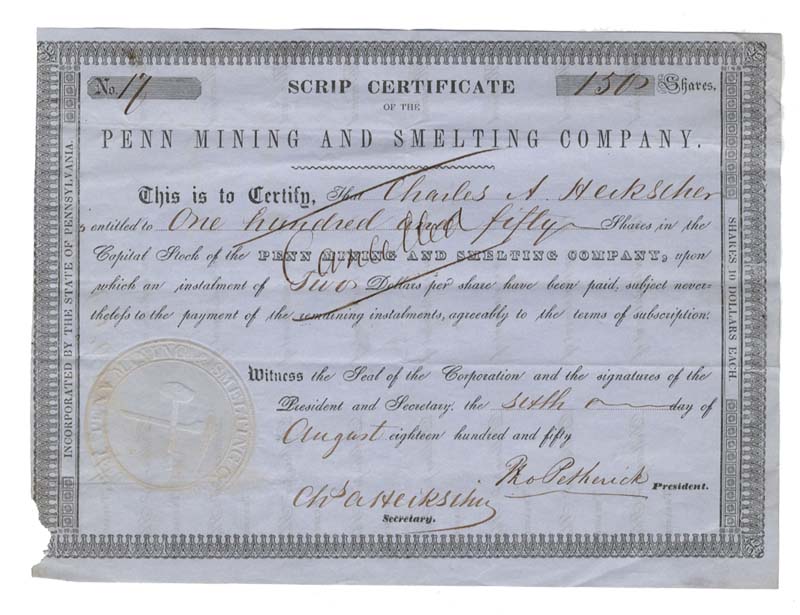 No. 17
150 Shares.
SCRIP CERTIFICATE
OF THE
PENN MINING AND SMELTING COMPANY.
This is to Certify, That Charles A. Heckscher
is entitled to One hundred and fifty Shares in the
Capital Stock of the PENN MINING AND SMELTING COMPANY, upon
which an instalment of Two Dollars per share have been paid, subject never-
theless to the payment of the remaining instalments, agreeably to the terms of subscription.
Cancelled
Witness the Seal of the Corporation and the signatures of the
President and Secretary, the sixth day of
August eighteen hundred and fifty
Tho Petherick President.
Chs A Heckscher
Secretary.
INCORPORATED BY THE STATE OF PENNSYLVANIA.
SHARES 10 DOLLARS EACH.
PENN MINING & SMELTING CO.